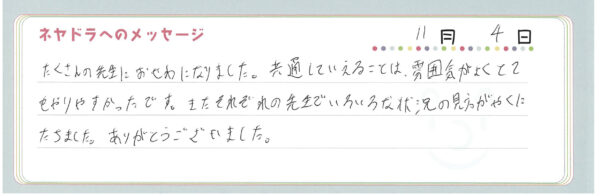 ネヤドラへのメッセージ
11月 4日
たくさんの先生におせわになりました。共通していえることは、雰囲気がよくとて
もやりやすかったです。またそれぞれの先生でいろいろな状況の見方がやくに
たちました。ありがとうございました。